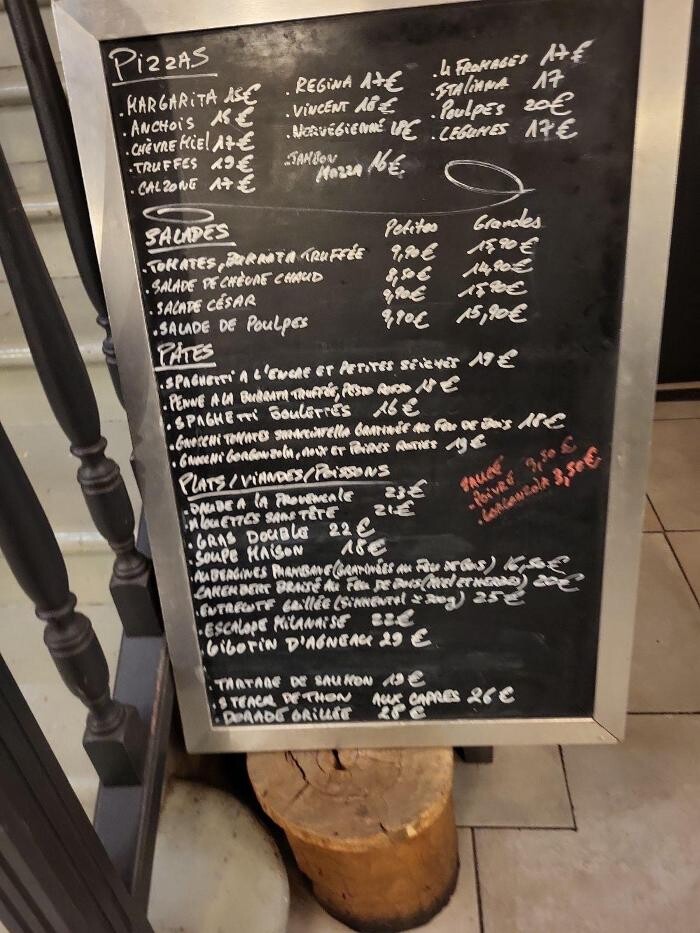 PIZZAS
. MARGARITA 15€
. ANCHOIS 15€
. CHÈVRE MIEL 17€
. TRUFFES 19€
. CALZONE 17€
. REGINA 17€
. VINCENT 18€
. NORVÉGIENNE 18€
. JAMBON
MOZZA 16€
. 4 FROMAGES 17€
. ITALIANA 17
. POULPES 20€
. LEGUMES 17€
SALADES Petites Grandes
. TOMATES, BURRATA TRUFFÉE 9,90€ 15,90€
. SALADE DE CHÈVRE CHAUD 8,50€ 14,90€
. SALADE CÉSAR 9,90€ 15,90€
. SALADE DE POULPES 9,90€ 15,90€
PATES
. SPAGHETTI A L'ENCRE ET PETITES SEICHES 19€
. PENNE A LA BURRATA TRUFFÉE, PESTO ROSSO 18€
. SPAGHETTI BOULETTES 16€
. GNOCCHI TOMATES STRACCIATELLA GRATINÉE AU FEU DE BOIS 18€
. GNOCCHI GORGONZOLA, NOIX ET POIRES ROTIES 19€
PLATS/VIANDES/POISSONS
. DAUBE A LA PROVENCALE 23€
. ALOUETTES SANS TÊTE 21€
. GRAS DOUBLE 22€
. SOUPE MAISON 18€
. AUBERGINES PARMESANE (GRATINÉES AU FEU DE BOIS) 16,50€
. CAMEMBERT BRAISÉ AU FEU DE BOIS (MIEL ET HERBES) 20€
. ENTRECÔTE GRILLÉE (SIMMENTAL ± 300g) 25€
. ESCALOPE MILANAISE 22€
. GIGOTIN D'AGNEAU 29€
. TARTARE DE SAUMON 19€
. STEACK DE THON AUX CAPRES 26€
. DORADE GRILLÉE 28€
SAUCE
. POIVRE 3,50€
. GORGONZOLA 3,50€